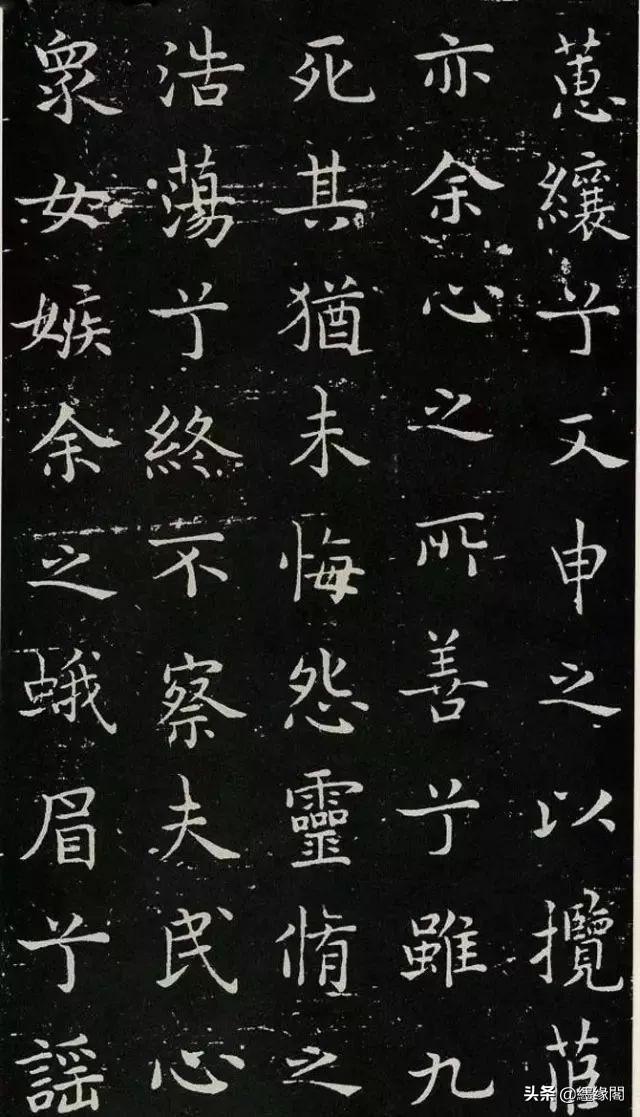 蕙纕兮又申之以攬茝
亦余心之所善兮雖九
死其猶未悔怨靈脩之
浩蕩兮終不察夫民心
衆女嫉余之蛾眉兮謠
头条 @纆缘閣